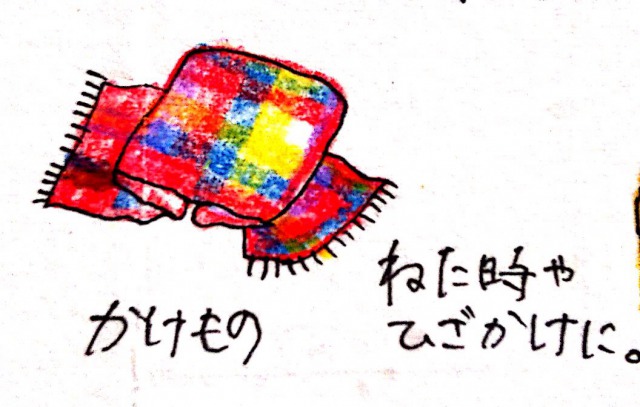 かけもの
ねた時や
ひざかけに。